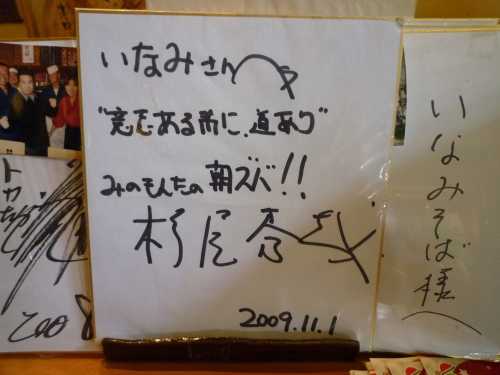 いなみさんへ
"意志ある所に、道あり"
みのもんたの朝ズバ!!
杉尾
2009.11.1
いなみそば様へ
トカちゃん
2008